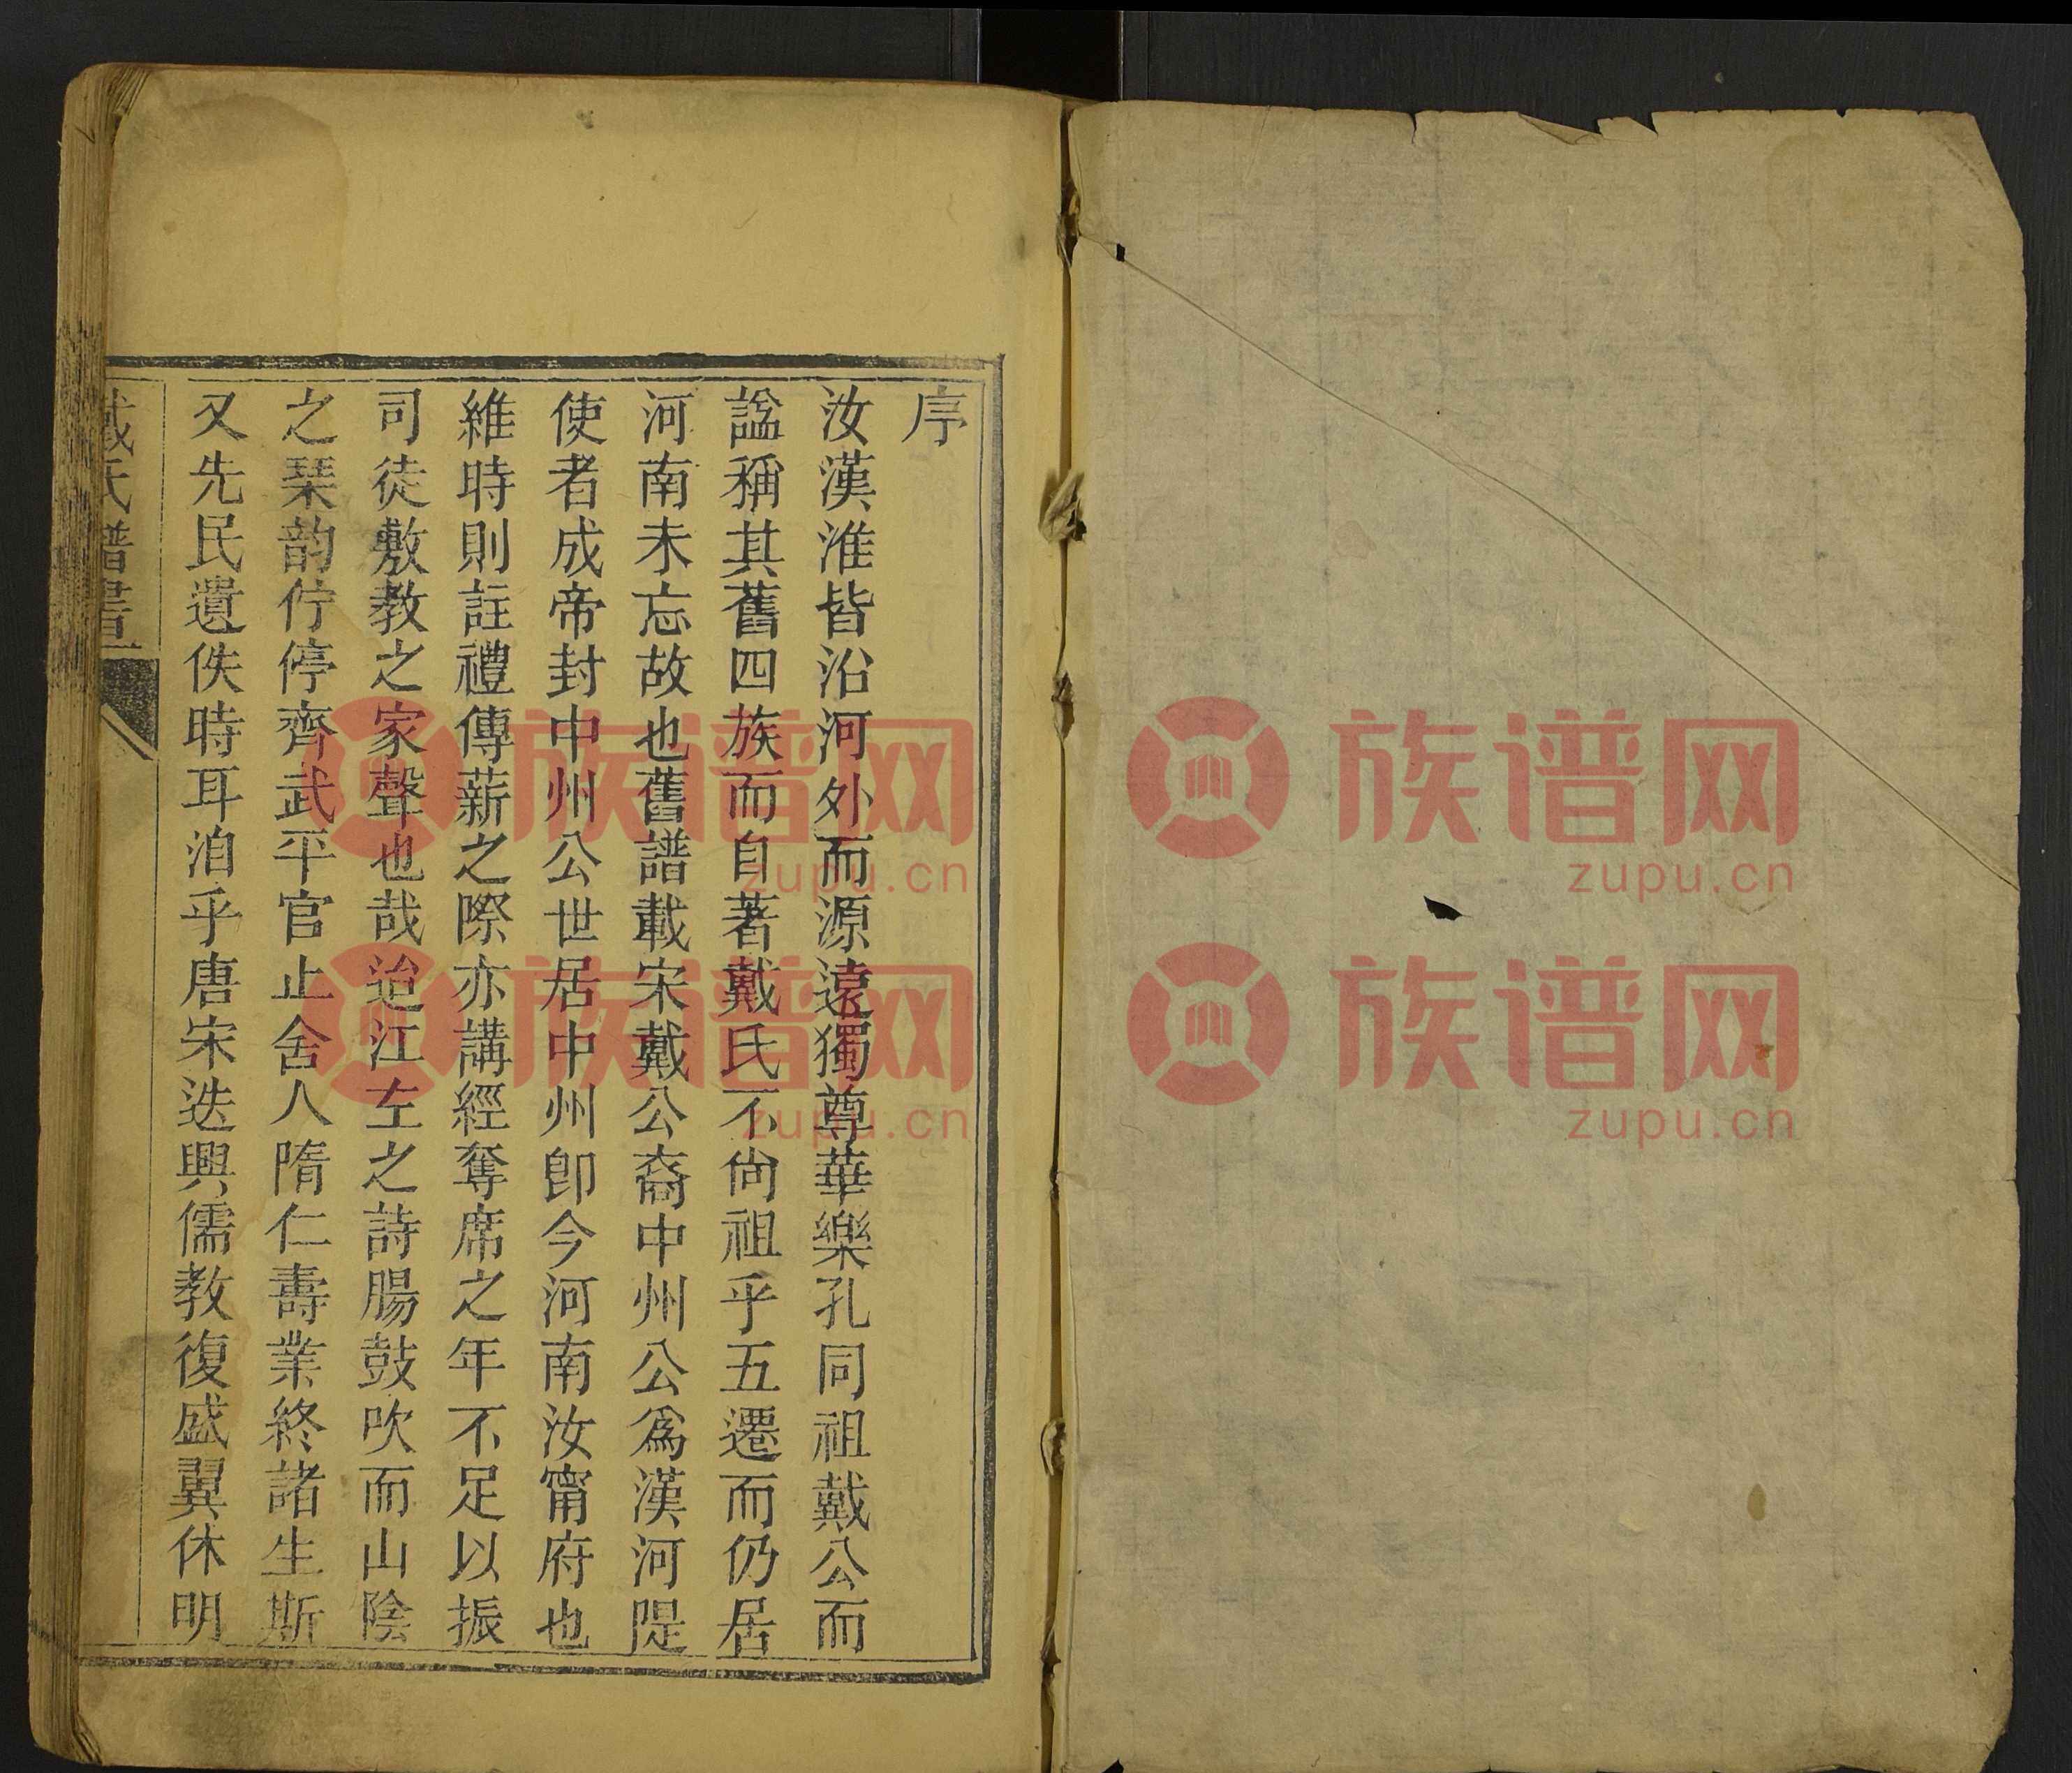 序
汝漢淮皆沿河外而源遠獨尊華樂孔同祖戴公而
謚稱其舊四族而自著戴氏不尙祖乎五遷而仍居
河南未忘故也舊譜載宋戴公裔中州公爲漢河隄
使者成帝封中州公世居中州卽今河南汝甯府也
維時則註禮傳薪之際亦講經奪席之年不足以振
司徒敷教之家聲也哉迨江左之詩腸鼓吹而山陰
之琹韵佇停齊武平官止舍人隋仁壽業終諸生斯
又先民遺佚時耳洎乎唐宋迭興儒教復盛翼休明
戴氏譜書
族谱网
zupu.cn
族谱网
zupu.cn
族谱网
zupu.cn
族谱网
zupu.cn